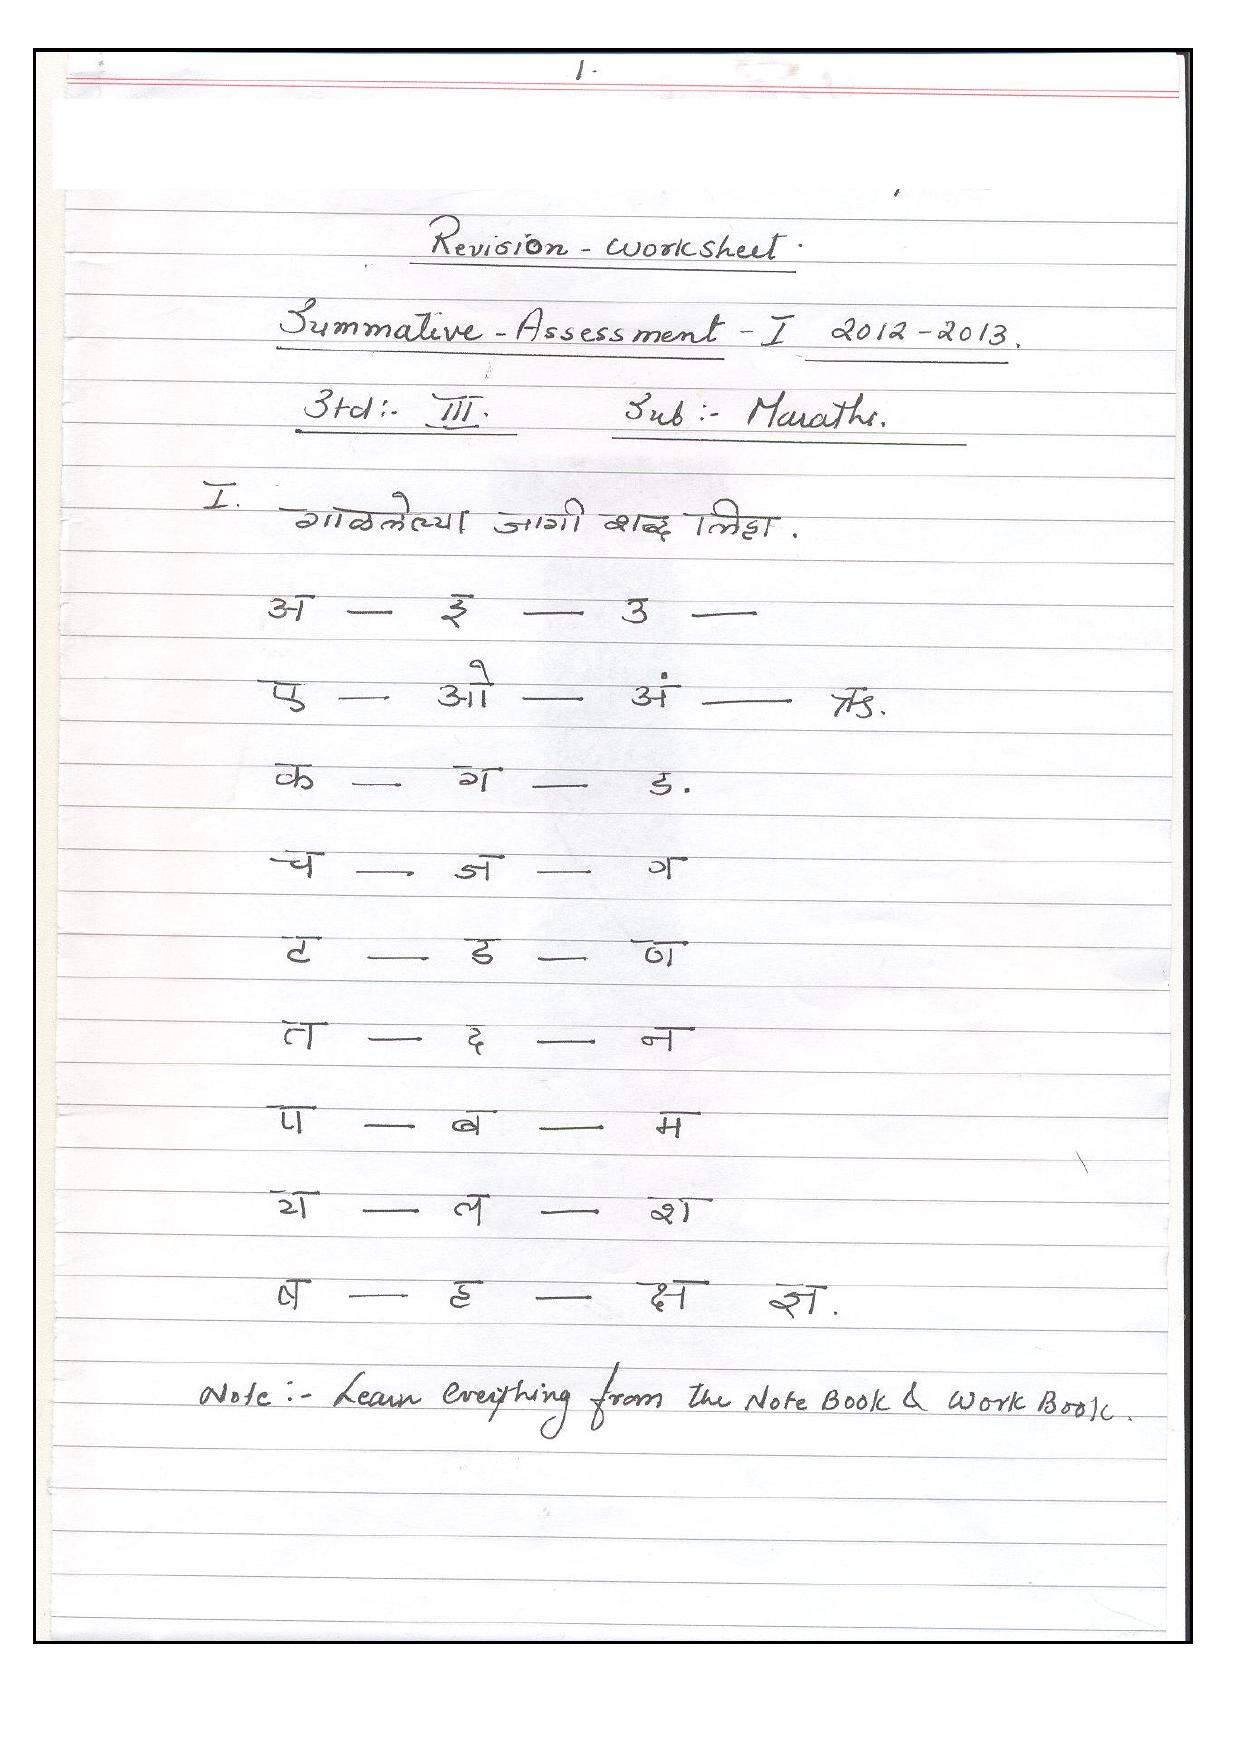 1.
Revision - Worksheet.
Summative - Assessment - I 2012 - 2013.
Std:- III. Sub:- Marathi.
I. गाळलेल्या जागी शब्द लिहा.
अ — इ — उ —
ए — ओ — अं — ऋ.
क — ग — ङ.
च — ज — ग
ट — ड — ण
त — द — न
प — ब — म
य — ल — श
ष — ह — क्ष ज्ञ.
Note :- Learn everything from the Note Book & Work Book.